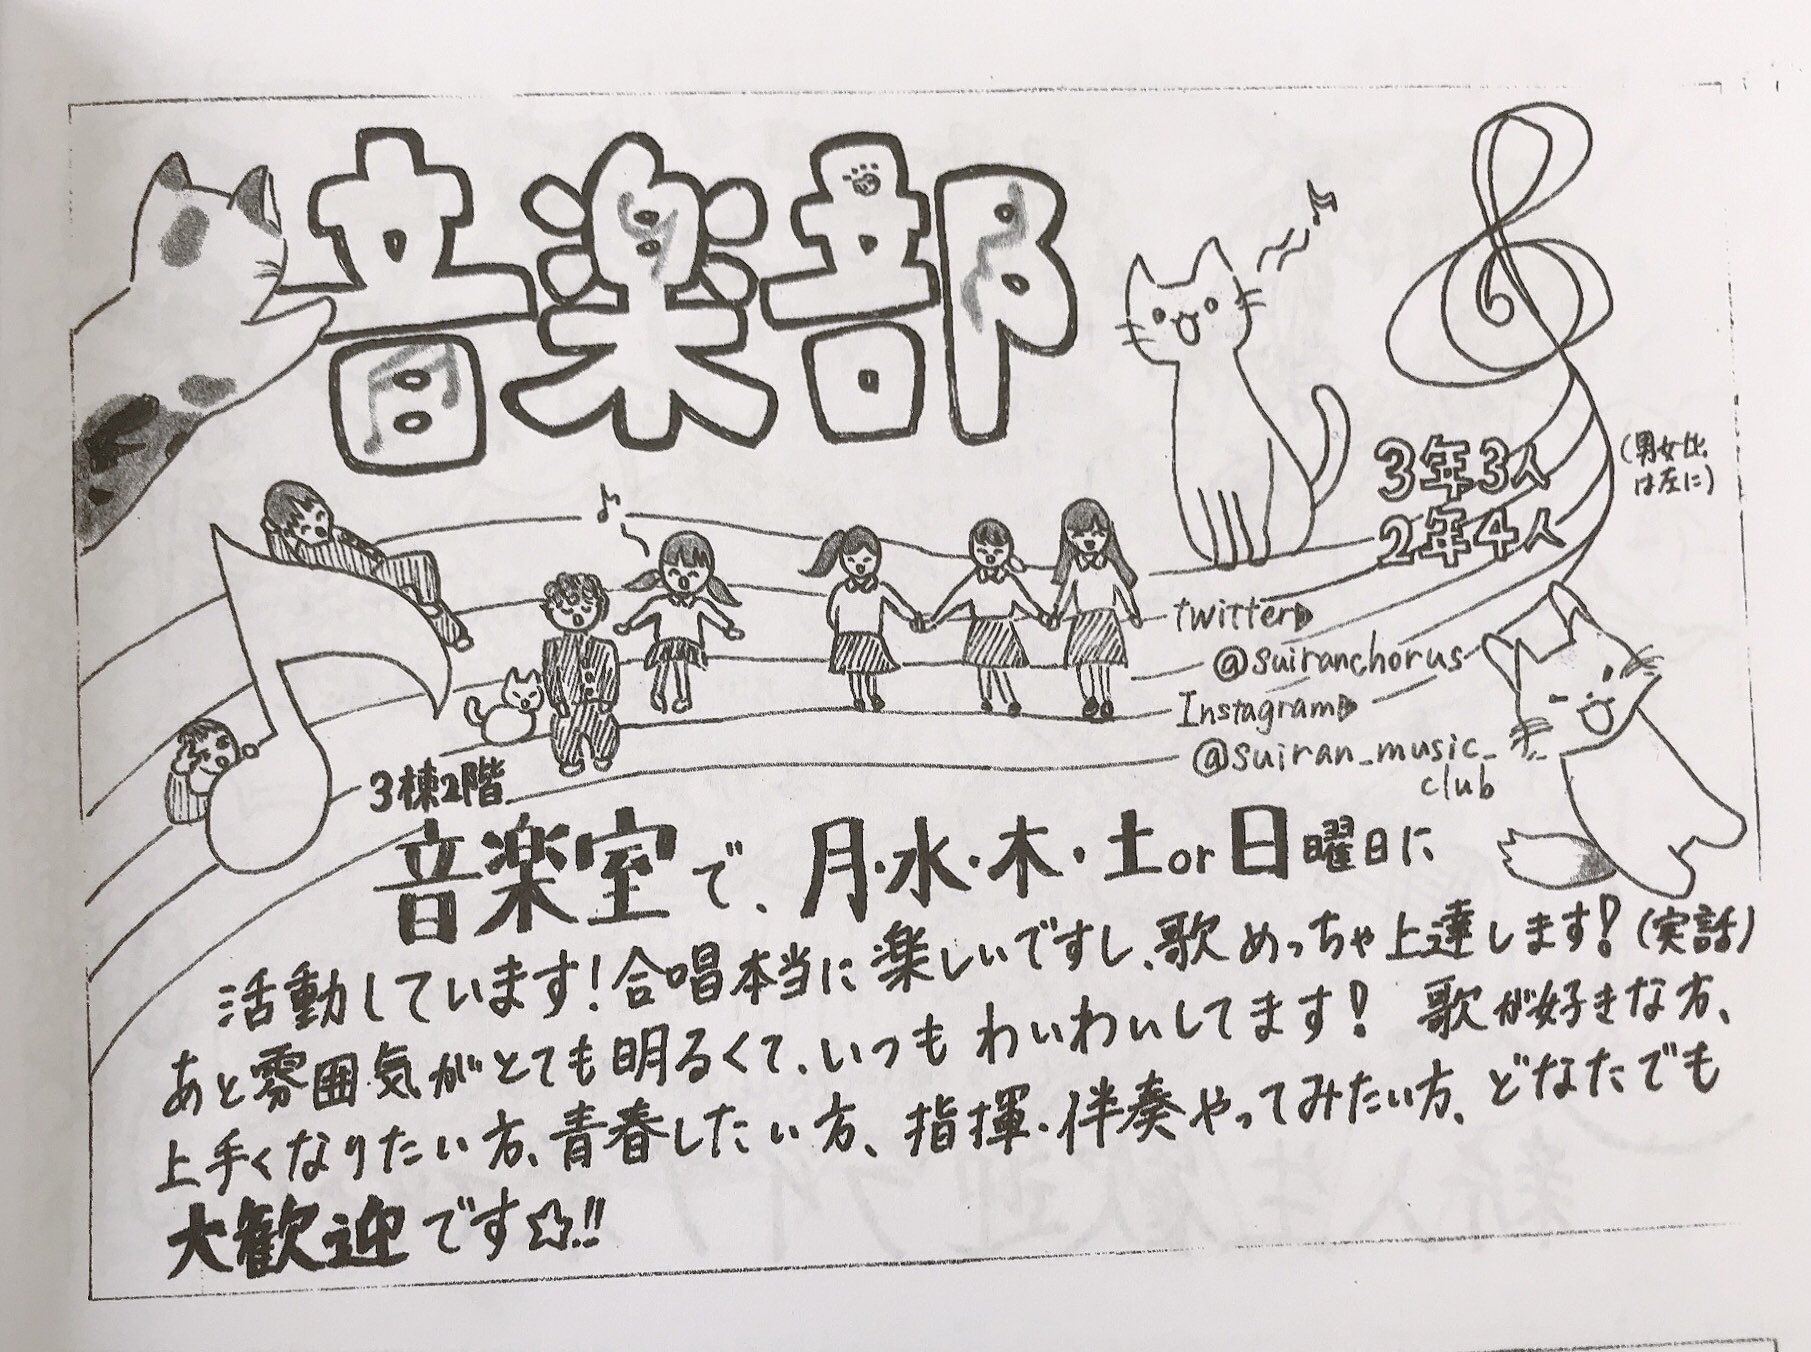 音楽部
3年3人
2年4人
(男女比
は左に)
twitter▶
@suiranchorus
Instagram▶
@suiran_music_
club
3棟2階
音楽室で、月・水・木・土or日曜日に
活動しています!合唱本当に楽しいですし、歌めっちゃ上達します!(実話)
あと雰囲気がとても明るくて、いつもわいわいしてます! 歌が好きな方、
上手くなりたい方、青春したい方、指揮・伴奏やってみたい方、どなたでも
大歓迎です☆!!